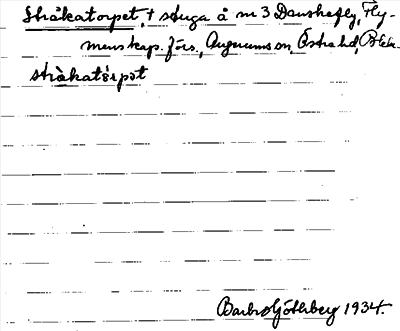 Stråkatorpet, † stuga å nr 3 Danskefly, Fly-
menskap. förs., Augerums sn, Östra hd, Blek.
stråkatòrpət
Barbro Götherberg 1934.